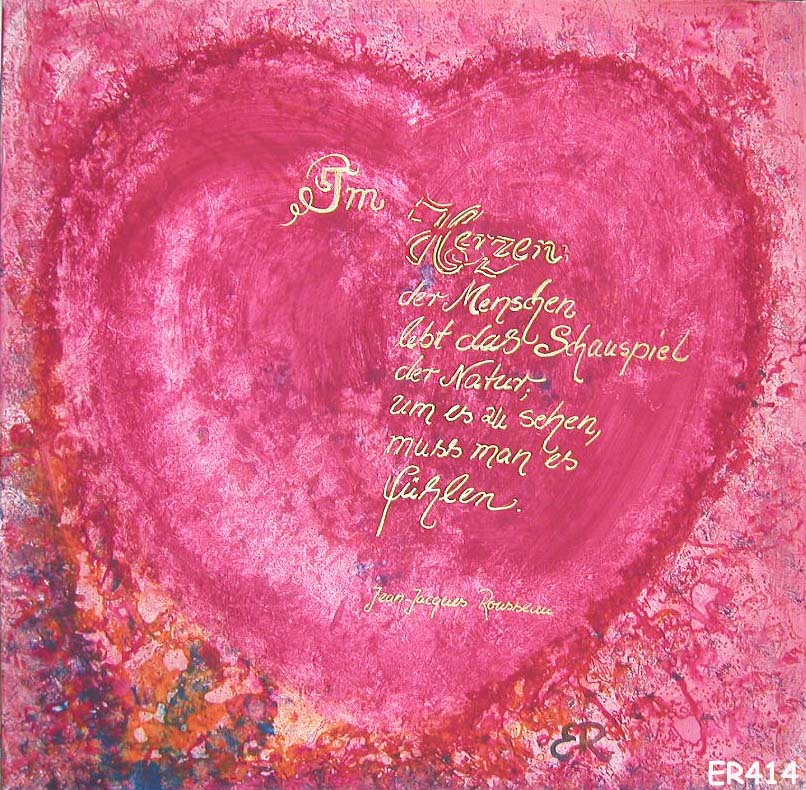 Im
Herzen
der Menschen
lebt das Schauspiel
der Natur;
um es zu sehen,
muss man es
fühlen.
Jean-Jacques Rousseau
ER
ER414